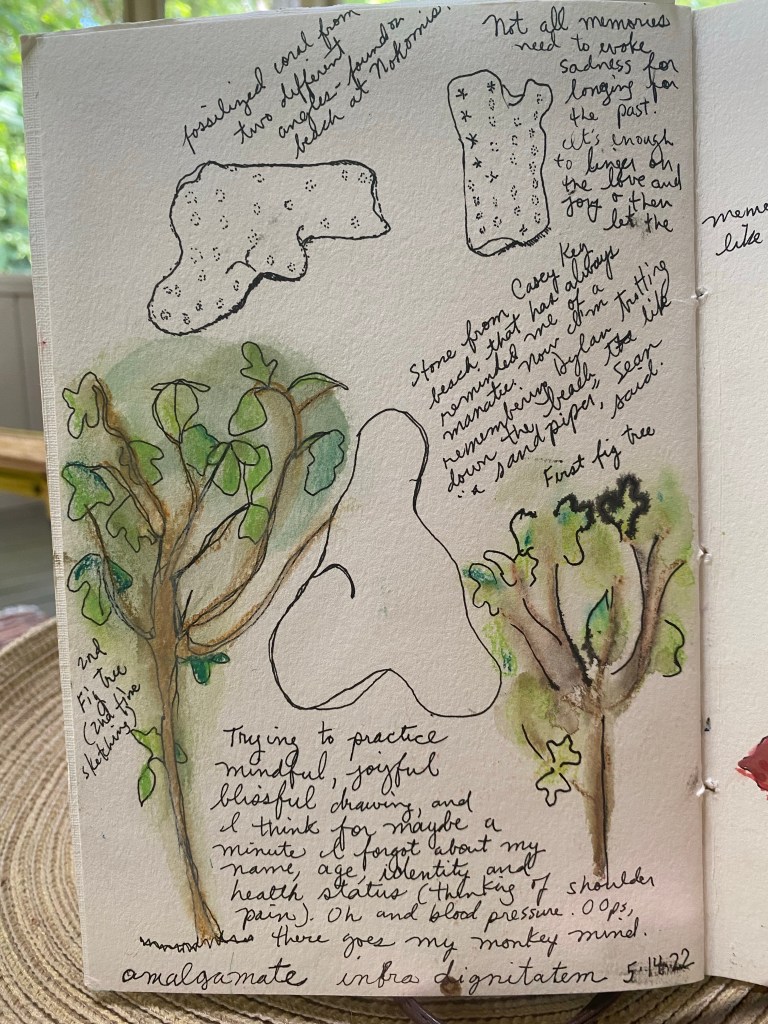 fossilized coral from
two different
angles- found on
beach at Nokomis.
Not all memories
need to evoke
sadness for
longing for
the past.
It's enough
to linger on
the love and
joy & then
let the
Stone from Casey Key
beach that has always
reminded me of a
manatee. Now I'm
remembering Dylan trotting
down the beach like
"a sand piper," Sean
said.
First fig tree
2nd
Fig tree
(2nd time
sketching)
Trying to practice
mindful, joyful
blissful drawing, and
I think for maybe a
minute I forgot about my
name, age, identity and
health status (thinking of shoulder
pain). Oh and blood pressure. OOps,
there goes my monkey mind.
amalgamate infra dignitatem 5.14.22
like